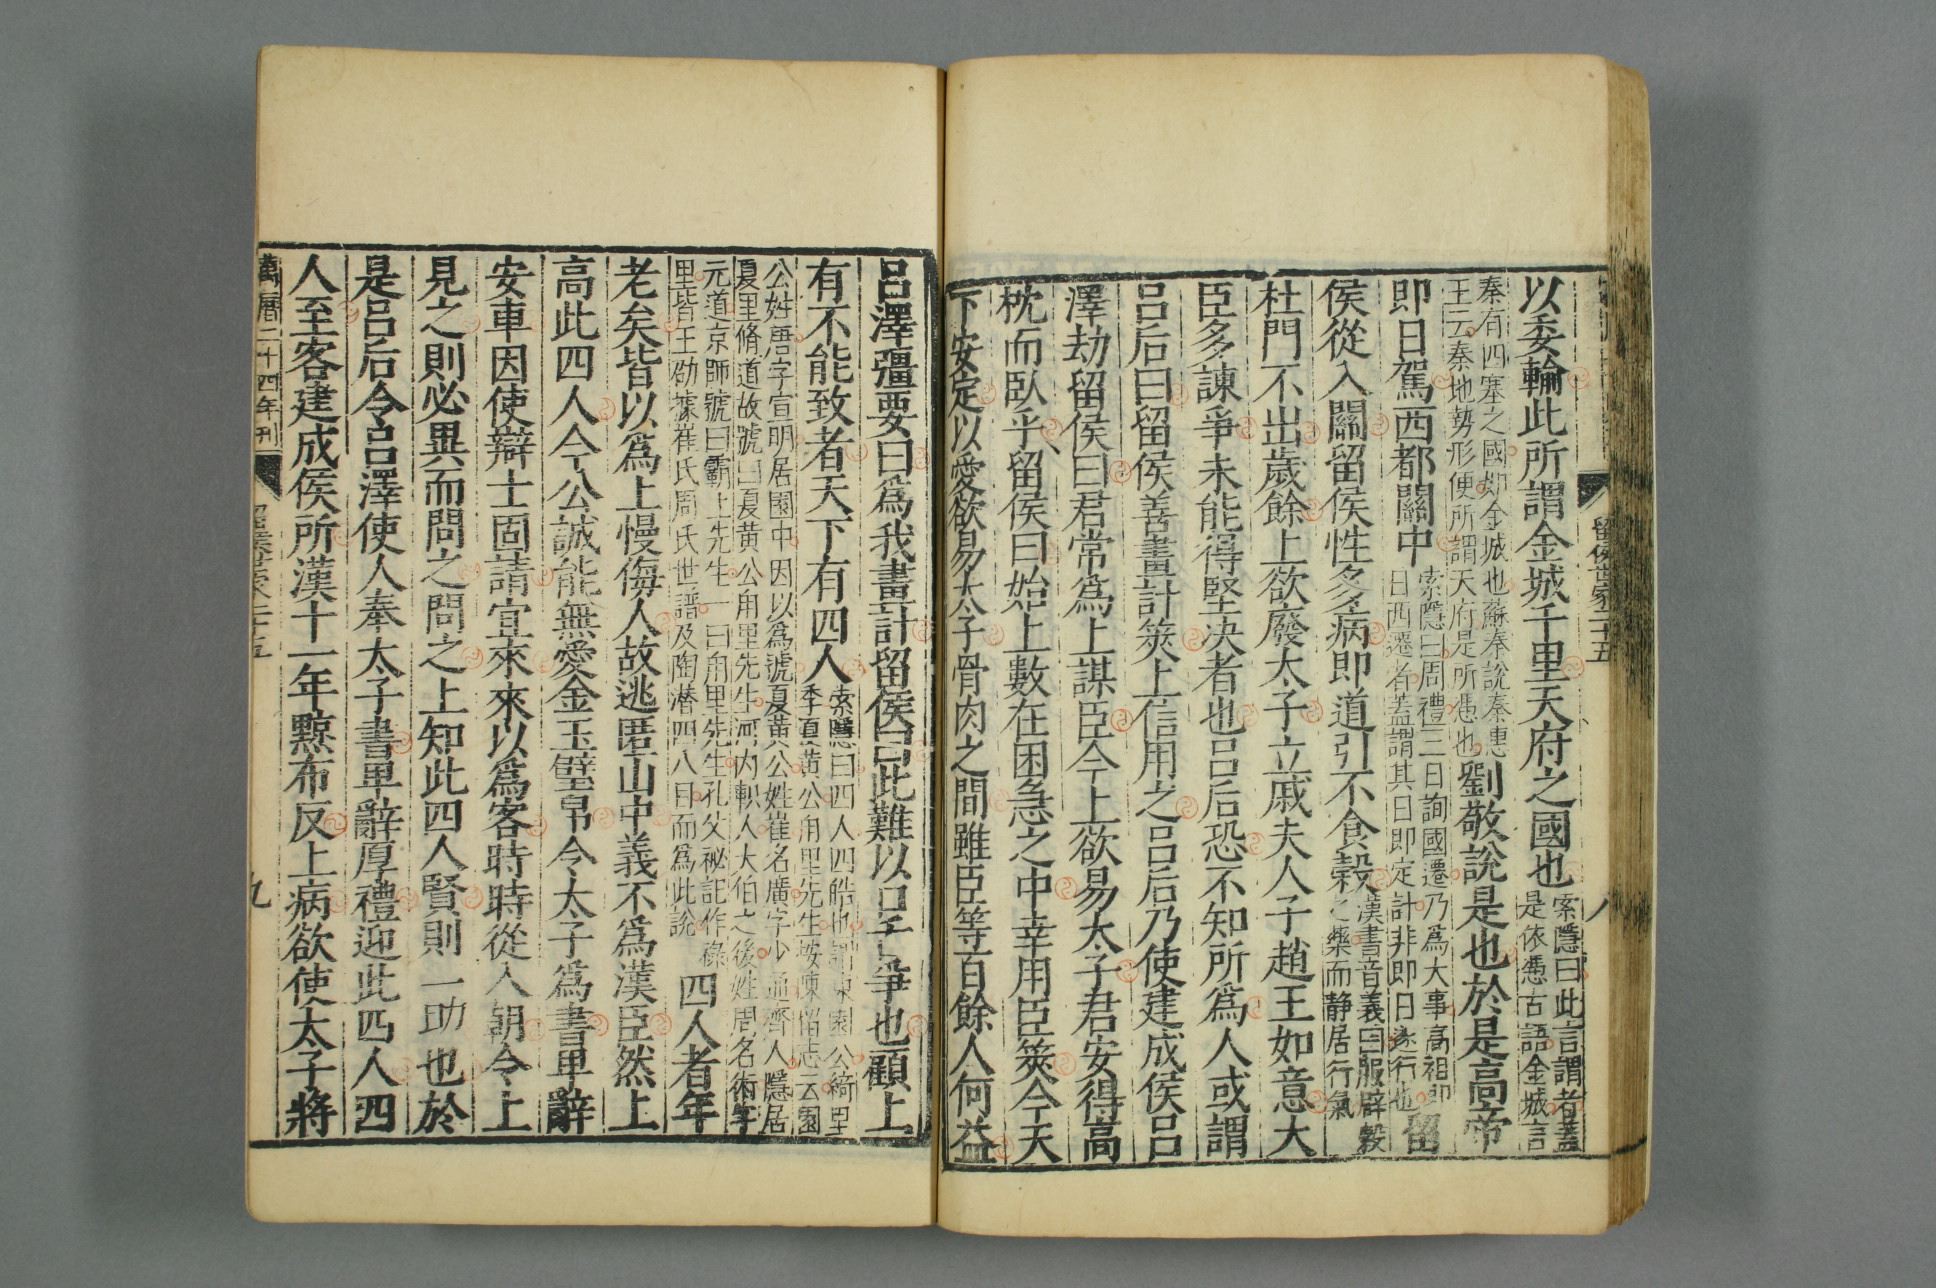 留侯世家二十五
八
以委輸此所謂金城千里天府之國也索隱曰此言謂者蓋是依憑古語金城言
秦有四塞之國如金城也蘇秦說秦惠王云秦地勢形便所謂天府是所憑也劉敬說是也於是高帝
即日駕西都關中索隱曰周禮三曰詢國遷乃爲大事高祖即日西遷者蓋謂其日即定計非即日遂行也留
侯從入關留侯性多病即道引不食穀漢書音義曰服辟穀之藥而静居行氣
杜門不出歲餘上欲廢太子立戚夫人子趙王如意大
臣多諫爭未能得堅决者也吕后恐不知所爲人或謂
吕后曰留侯善畫計筴上信用之吕后乃使建成侯吕
澤劫留侯曰君常爲上謀臣今上欲易太子君安得高
枕而臥乎留侯曰始上數在困急之中幸用臣筴今天
下安定以愛欲易太子骨肉之間雖臣等百餘人何益
吕澤彊要曰爲我畫計留侯曰此難以口舌爭也顧上
有不能致者天下有四人索隱曰四人四皓也謂東園公綺里季夏黄公甪里先生按陳留志云園
公姓唐字宣明居園中因以爲號夏黄公姓崔名廣字少通齊人隱居夏里脩道故號曰夏黄公甪里先生河内軹人太伯之後姓周名術字
元道京師號曰霸上先生一曰甪里先生孔父祕記作祿里皆王劭據崔氏周氏世譜及陶潛四八目而爲此說四人者年
老矣皆以爲上慢侮人故逃匿山中義不爲漢臣然上
高此四人今公誠能無愛金玉璧帛令太子爲書卑辭
安車因使辯士固請宜來來以爲客時時從入朝令上
見之則必異而問之問之上知此四人賢則一助也於
是吕后令吕澤使人奉太子書卑辭厚禮迎此四人四
人至客建成侯所漢十一年黥布反上病欲使太子將
萬曆二十四年刊
九